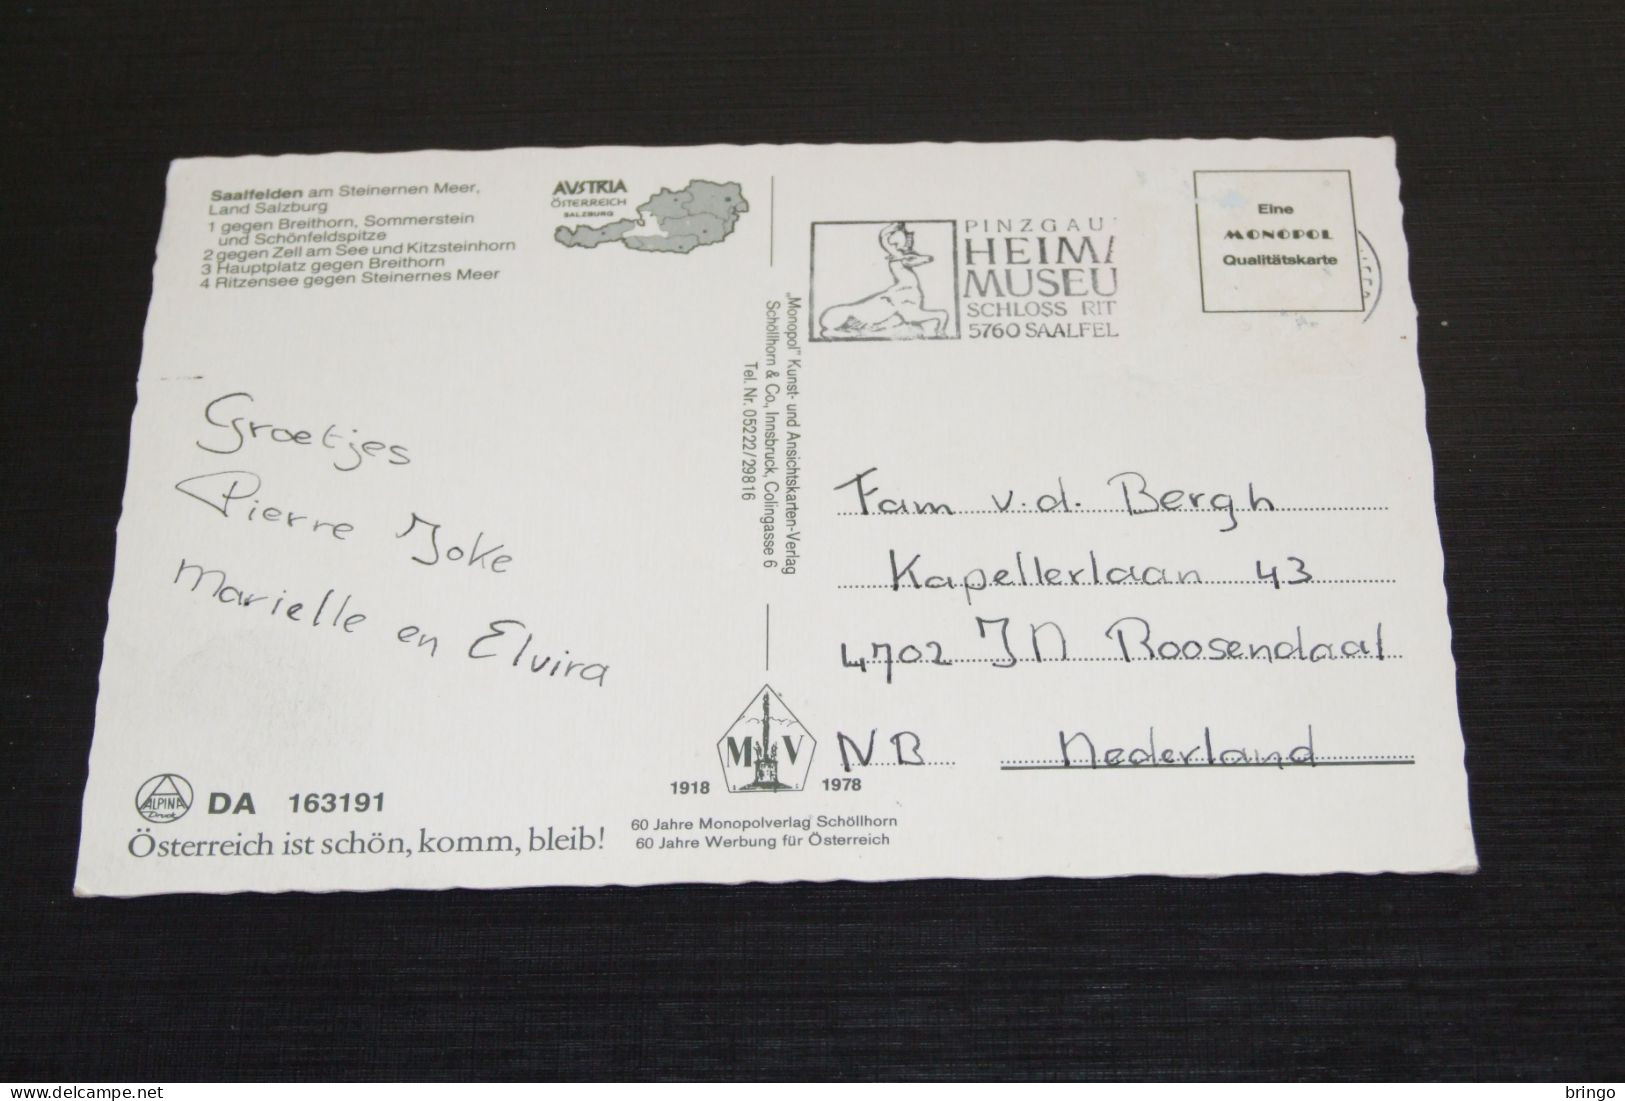 Saalfelden am Steinernen Meer,
Land Salzburg
1 gegen Breithorn, Sommerstein
und Schönfeldspitze
2 gegen Zell am See und Kitzsteinhorn
3 Hauptplatz gegen Breithorn
4 Ritzensee gegen Steinernes Meer
AVSTRIA
ÖSTERREICH
SALZBURG
PINZGAU
HEIM
MUSEU
SCHLOSS RIT
5760 SAALFEL
Eine
MONOPOL
Qualitätskarte
„Monopol" Kunst- und Ansichtskarten-Verlag
Schöllhorn & Co., Innsbruck, Colingasse 6
Tel. Nr. 05222/29816
Groetjes
Pierre Joke
Marielle en Elvira
Fam v.d. Bergh
Kapellerlaan 43
4702 JN Roosendaal
NB Nederland
M V
1918 1978
60 Jahre Monopolverlag Schöllhorn
60 Jahre Werbung für Österreich
ALPINA
Druck
DA 163191
Österreich ist schön, komm, bleib!
bringo